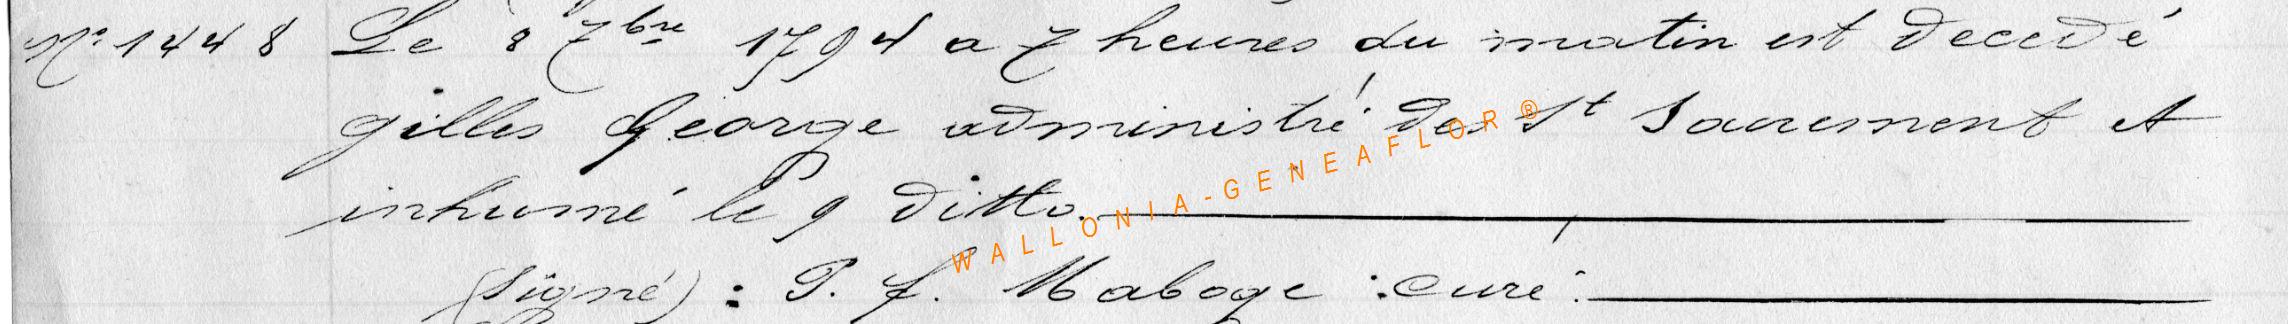 N° 1448 Le 8 7bre 1794 a 7 heures du matin est decedé
gilles George administré des St Sacrement et
inhumé le 9 ditto.
(signé) : P. f. Maboge : curé.
WALLONIA-GENEAFLOR®